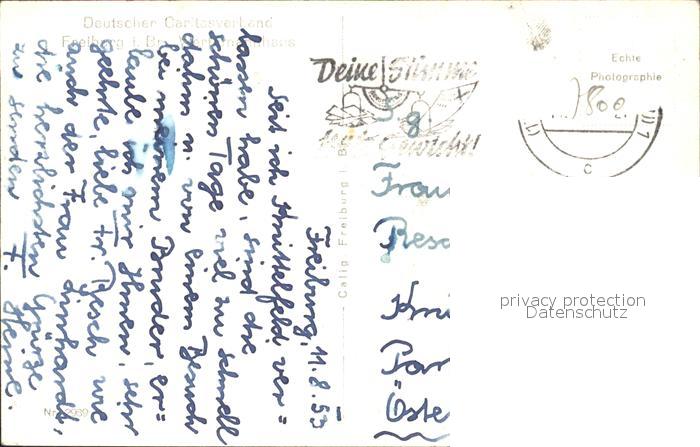 Deutscher Caritasverband
Freiburg i. Br.
Freiburg, 11.8.53
Seit ich Knittelfeld ver=
lassen habe, sind die
schönen Tage viel zu schnell
dahin u. von einem Besuch
bei meinem Bruder, er=
laube ich mir Ihnen, sehr
geehrte, liebe Fr. Resch wie
auch der Frau Linhardt,
die herzlichsten Grüsse
zu senden
Nr. 3939
Calig Freiburg i. B
Deine Stimme
Gewicht!
Echte
Photographie
c
Frau
Resc
Kni
Par
Öste
privacy protection
Datenschutz